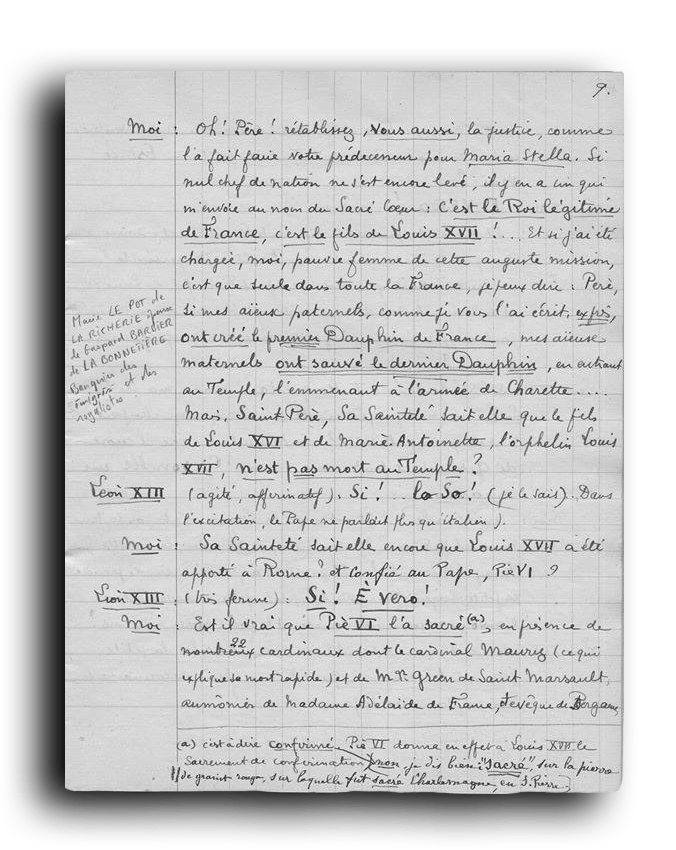 9.
Moi : Oh! Père! rétablissez, vous aussi, la justice, comme
l'a fait faire votre prédecesseur pour Maria Stella. Si
nul chef de nation ne s'est encore levé, il y en a un qui
m'envoie au nom du Sacré Cœur : c'est le Roi légitime
de France, c'est le fils de Louis XVII !... Et si j'ai été
chargée, moi, pauvre femme de cette auguste mission,
c'est que seule dans toute la France, je peux dire : Père,
si mes aïeux paternels, comme je vous l'ai écrit, exprès,
ont créé le premier Dauphin de France, mes aïeux
maternels ont sauvé le dernier Dauphin, en entrant
au Temple, l'emmenant à l'armée de Charette ....
Mais, Saint Père, Sa Sainteté sait elle que le fils
de Louis XVI et de Marie Antoinette, l'orphelin Louis
XVII, n'est pas mort au Temple ?
Marie LE POT de
LA RICHERIE
de Gaspard BARBIER
de LA BONNETIÈRE
Banquier des
émigrés et des
royalistes
Léon XIII (agité, affirmatif). Si! .. lo So! (je le sais). Dans
l'excitation, le Pape ne parlait plus qu'italien).
Moi : Sa Sainteté sait elle encore que Louis XVII a été
apporté à Rome? et confié au Pape, Pie VI ?
Léon XIII : (très ferme) : Si! È vero!
Moi : Est il vrai que Pie VI l'a sacré (a), en présence de
22
nombreux cardinaux dont le cardinal Maurey (ce qui
explique sa mort rapide) et de Mgr Green de Saint Marsault,
aumônier de Madame Adélaïde de France, évêque de Pergame,
(a) c'est à dire confirmé. Pie VI donna en effet à Louis XVII le
Sacrement de confirmation) non, je dis bien : "sacré", sur la pierre
de granit rouge, sur laquelle fut sacré Charlemagne, en S. Pierre.